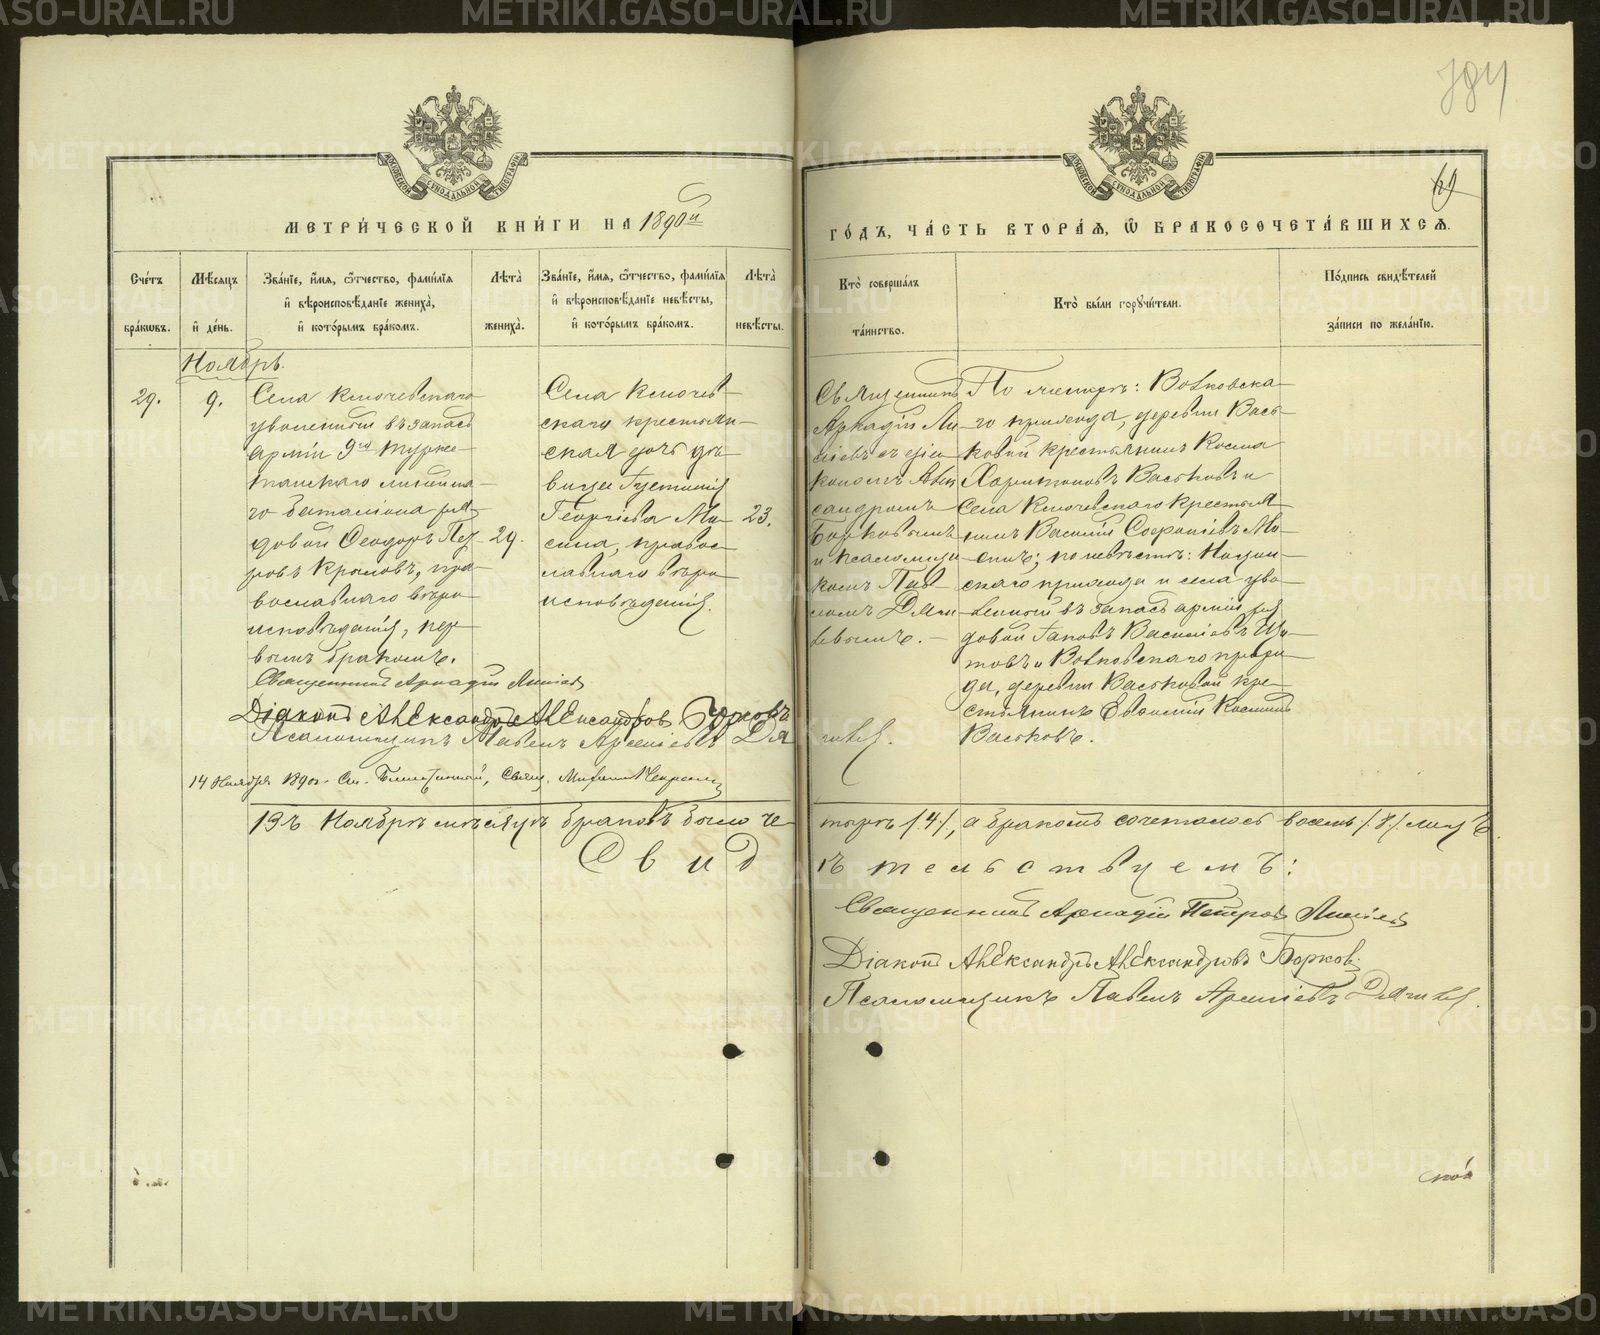 МЕТРИ́ЧЕСКОЙ КНИ́ГИ НА 1890й
ГО́ДЪ, ЧА́СТЬ ВТОРА́Я, Ѡ БРАКОСОЧЕТА́ВШИХСЯ.
Сче́тъ бра́кωвъ.
Мѣ́сяцъ и҆ де́нь.
Зва́нїе, и҆́мя, ѻ҆́тчество, фами́лїя
и҆ вѣроисповѣ́данїе жениха̀,
и҆ кото́рымъ бра́комъ.
Лѣ́та
жениха̀.
Зва́нїе, и҆́мя, ѻ҆́тчество, фами́лїя
и҆ вѣроисповѣ́данїе невѣ́сты,
и҆ кото́рымъ бра́комъ.
Лѣ́та
невѣ́сты.
Кто̀ соверша́лъ
та́инство.
Кто̀ бы́ли поручи́тели.
По́дпись свидѣ́телей
за́писи по жела́нїю.
Ноябрь.
29.
9.
Села Ключевскаго
уволенный въ запасъ
арміи 9го Турке-
танскаго линейна-
го баталіона ря-
довой Ѳеодоръ Пет-
ровъ Крыловъ, пра-
вославнаго вѣро-
исповѣданія, пер-
вымъ бракомъ.
29.
Села Ключев-
скаго крестьян-
ская дочь дѣ-
вица Іустинія
Георгіева Мо-
сина, правос-
лавнаго вѣро-
исповѣданія.
23.
Священникъ
Аркадій Ли-
піевъ съ діа-
кономъ Алек-
сандромъ
Борковымъ
и псаломщи-
комъ Пав-
ломъ Дяги-
левымъ. –
По женихѣ: Волковска-
го прихода, деревни Вась-
ковой крестьянинъ Косма
Харитоновъ Васьковъ и
села Ключевскаго крестья-
нинъ Василій Софоніевъ Мо-
синъ; по невѣстѣ:
скаго прихода и села уво-
ленный въ запасъ арміи ря-
довой Іаковъ Васильевъ
товъ и Волковскаго прихо-
да, деревни Васьковой кре-
стьянинъ Евѳимій Косминъ
Васьковъ.
Священникъ Аркадій Липіевъ
Діаконъ Александръ Александровъ Борковъ
Псаломщикъ Павелъ Арсеніевъ Дягилевъ.
14 Ноября 1890г.
Въ Ноябрѣ мѣсяцѣ браковъ было че-
тыре /4/, а бракомъ сочеталось восемь /8/ лицъ
Свидѣтельствуемъ:
Священникъ Аркадій Петровъ Липіевъ
Діаконъ Александръ Александровъ Борковъ
Псаломщикъ Павелъ Арсеніевъ Дягилевъ.